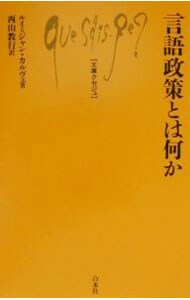 que sais-je?
言語政策とは何か
【文庫クセジュ】
ルイ=ジャン・カルヴェ著
西山教行訳
白水社